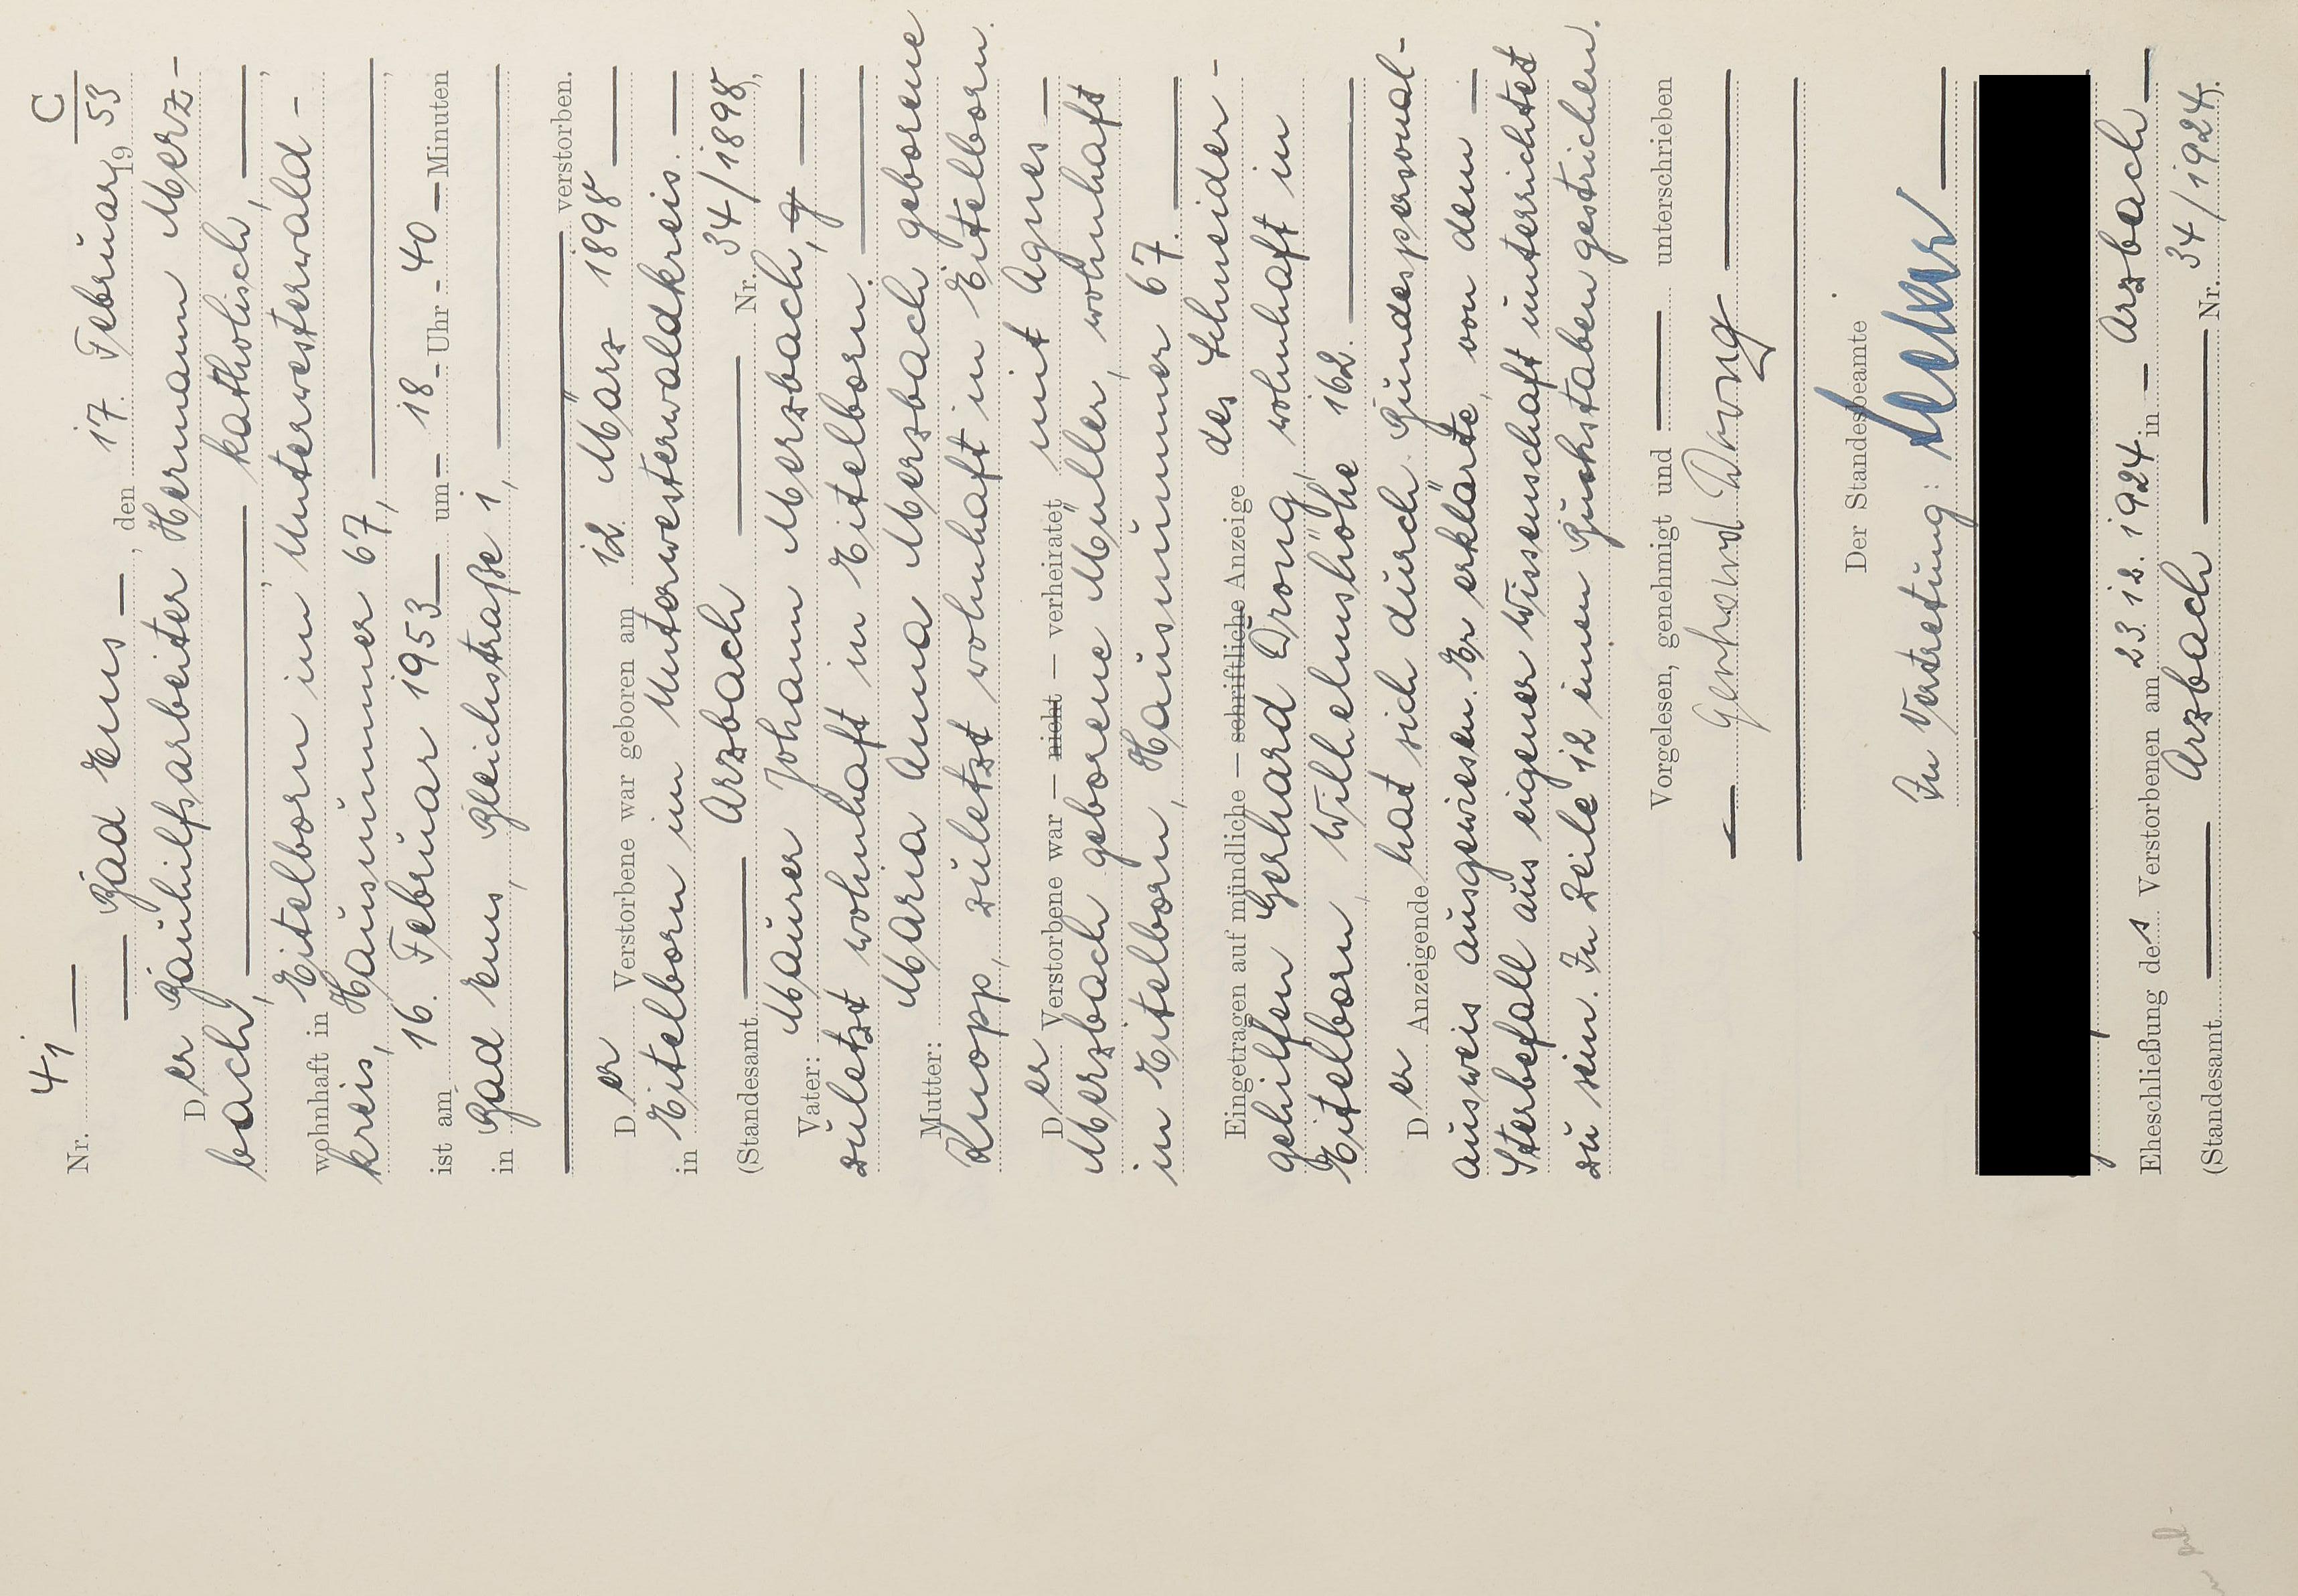 C
Nr. 41
Bad Ems, den 17. Februar 1953
Der Bauhilfsarbeiter Hermann Merz-
bach, katholisch,
wohnhaft in Eitelborn im Unterwesterwald-
kreis, Hausnummer 67,
ist am 16. Februar 1953 um 18 Uhr 40 Minuten
in Bad Ems, Bleichstraße 1,
verstorben.
Der Verstorbene war geboren am 12. März 1898
in Eitelborn im Unterwesterwaldkreis.
(Standesamt Arzbach Nr. 34/1898),
Vater: Maurer Johann Merzbach, g
zuletzt wohnhaft in Eitelborn.
Mutter: Maria Anna Merzbach geborene
Knopp, zuletzt wohnhaft in Eitelborn.
Der Verstorbene war – nicht – verheiratet mit Agnes
Merzbach geborene Müller, wohnhaft
in Eitelborn, Hausnummer 67.
Eingetragen auf mündliche – schriftliche Anzeige des Schneider-
gehilfen Gerhard Drong, wohnhaft in
Eitelborn, Wilhelmshöhe 162.
Der Anzeigende hat sich durch Bundespersonal-
ausweis ausgewiesen. Er erklärte, von dem
Sterbefall aus eigener Wissenschaft unterrichtet
zu sein. In Zeile 12 einen Buchstaben gestrichen.
Vorgelesen, genehmigt und unterschrieben
Gerhard Drong
Der Standesbeamte
In Vertretung:
Eheschließung des Verstorbenen am 23.12.1924 in Arzbach
(Standesamt Arzbach Nr. 34/1924).